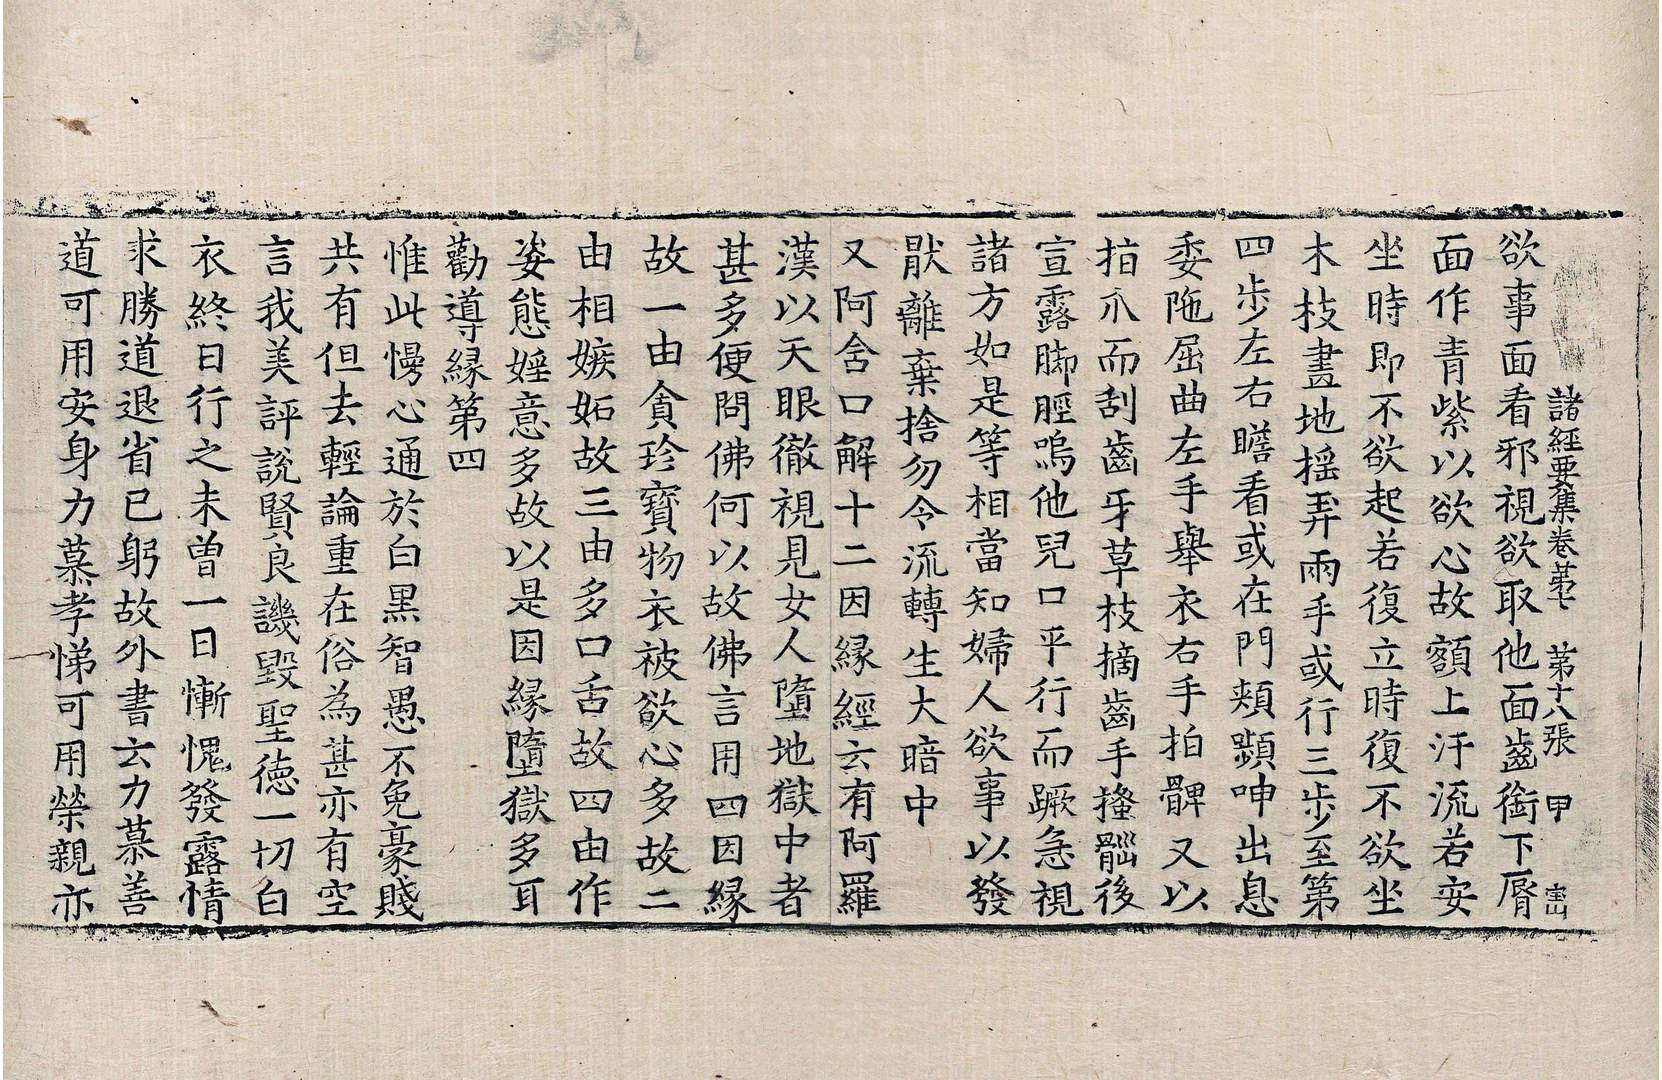 諸經要集卷第七 第十八張 甲 密
欲事面看邪視欲取他面齒銜下脣
面作青紫以欲心故額上汗流若安
坐時即不欲起若復立時復不欲坐
木枝畫地揺弄兩手或行三步至第
四步左右瞻看或在門頰顰呻出息
委陁屈曲左手舉衣右手拍髀又以
指爪而刮齒牙草枝摘齒手搔𦠊後
宣露脚脛嗚他兒口平行而蹶急視
諸方如是等相當知婦人欲事以發
猒離棄捨勿令流轉生大暗中
又阿含口解十二因緣經云有阿羅
漢以天眼徹視見女人墮地獄中者
甚多便問佛何以故佛言用四因緣
故一由貪珍寶物衣被欲心多故二
由相嫉妬故三由多口舌故四由作
姿態婬意多故以是因緣墮獄多耳
勸導緣第四
惟此慢心通於白黑智愚不免豪賤
共有但去輕論重在俗為甚亦有空
言我美評說賢良譏毀聖德一切白
衣終日行之未曾一日慚愧發露情
求勝道退省已躬故外書云力慕善
道可用安身力慕孝悌可用榮親亦